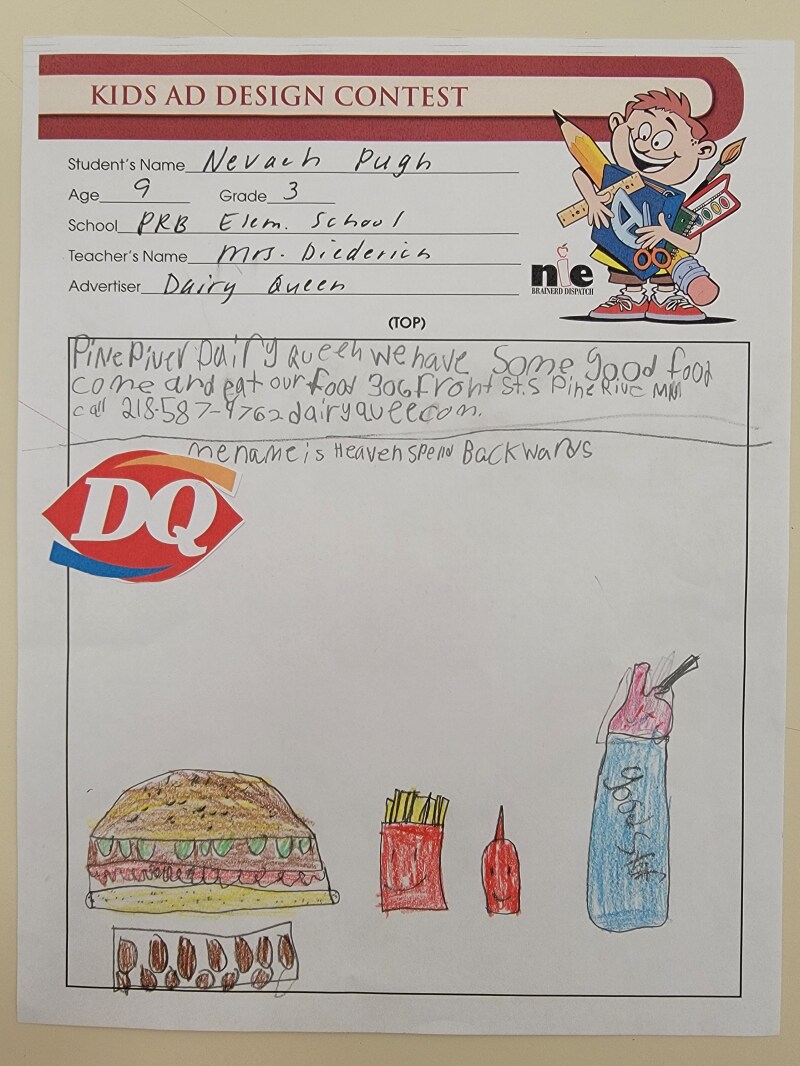 KIDS AD DESIGN CONTEST
Student's Name Nevaeh Pugh
Age 9 Grade 3
School PRB Elem. School
Teacher's Name Mrs. Diederich
Advertiser Dairy Queen
nie
BRAINERD DISPATCH
(TOP)
Pine River Dairy queen we have Some good food
come and eat our food 306 front St.S Pine Rive MN
call 218-587-4762 dairyqueecom.
me name is Heaven spend BackWards
DQ
good stif